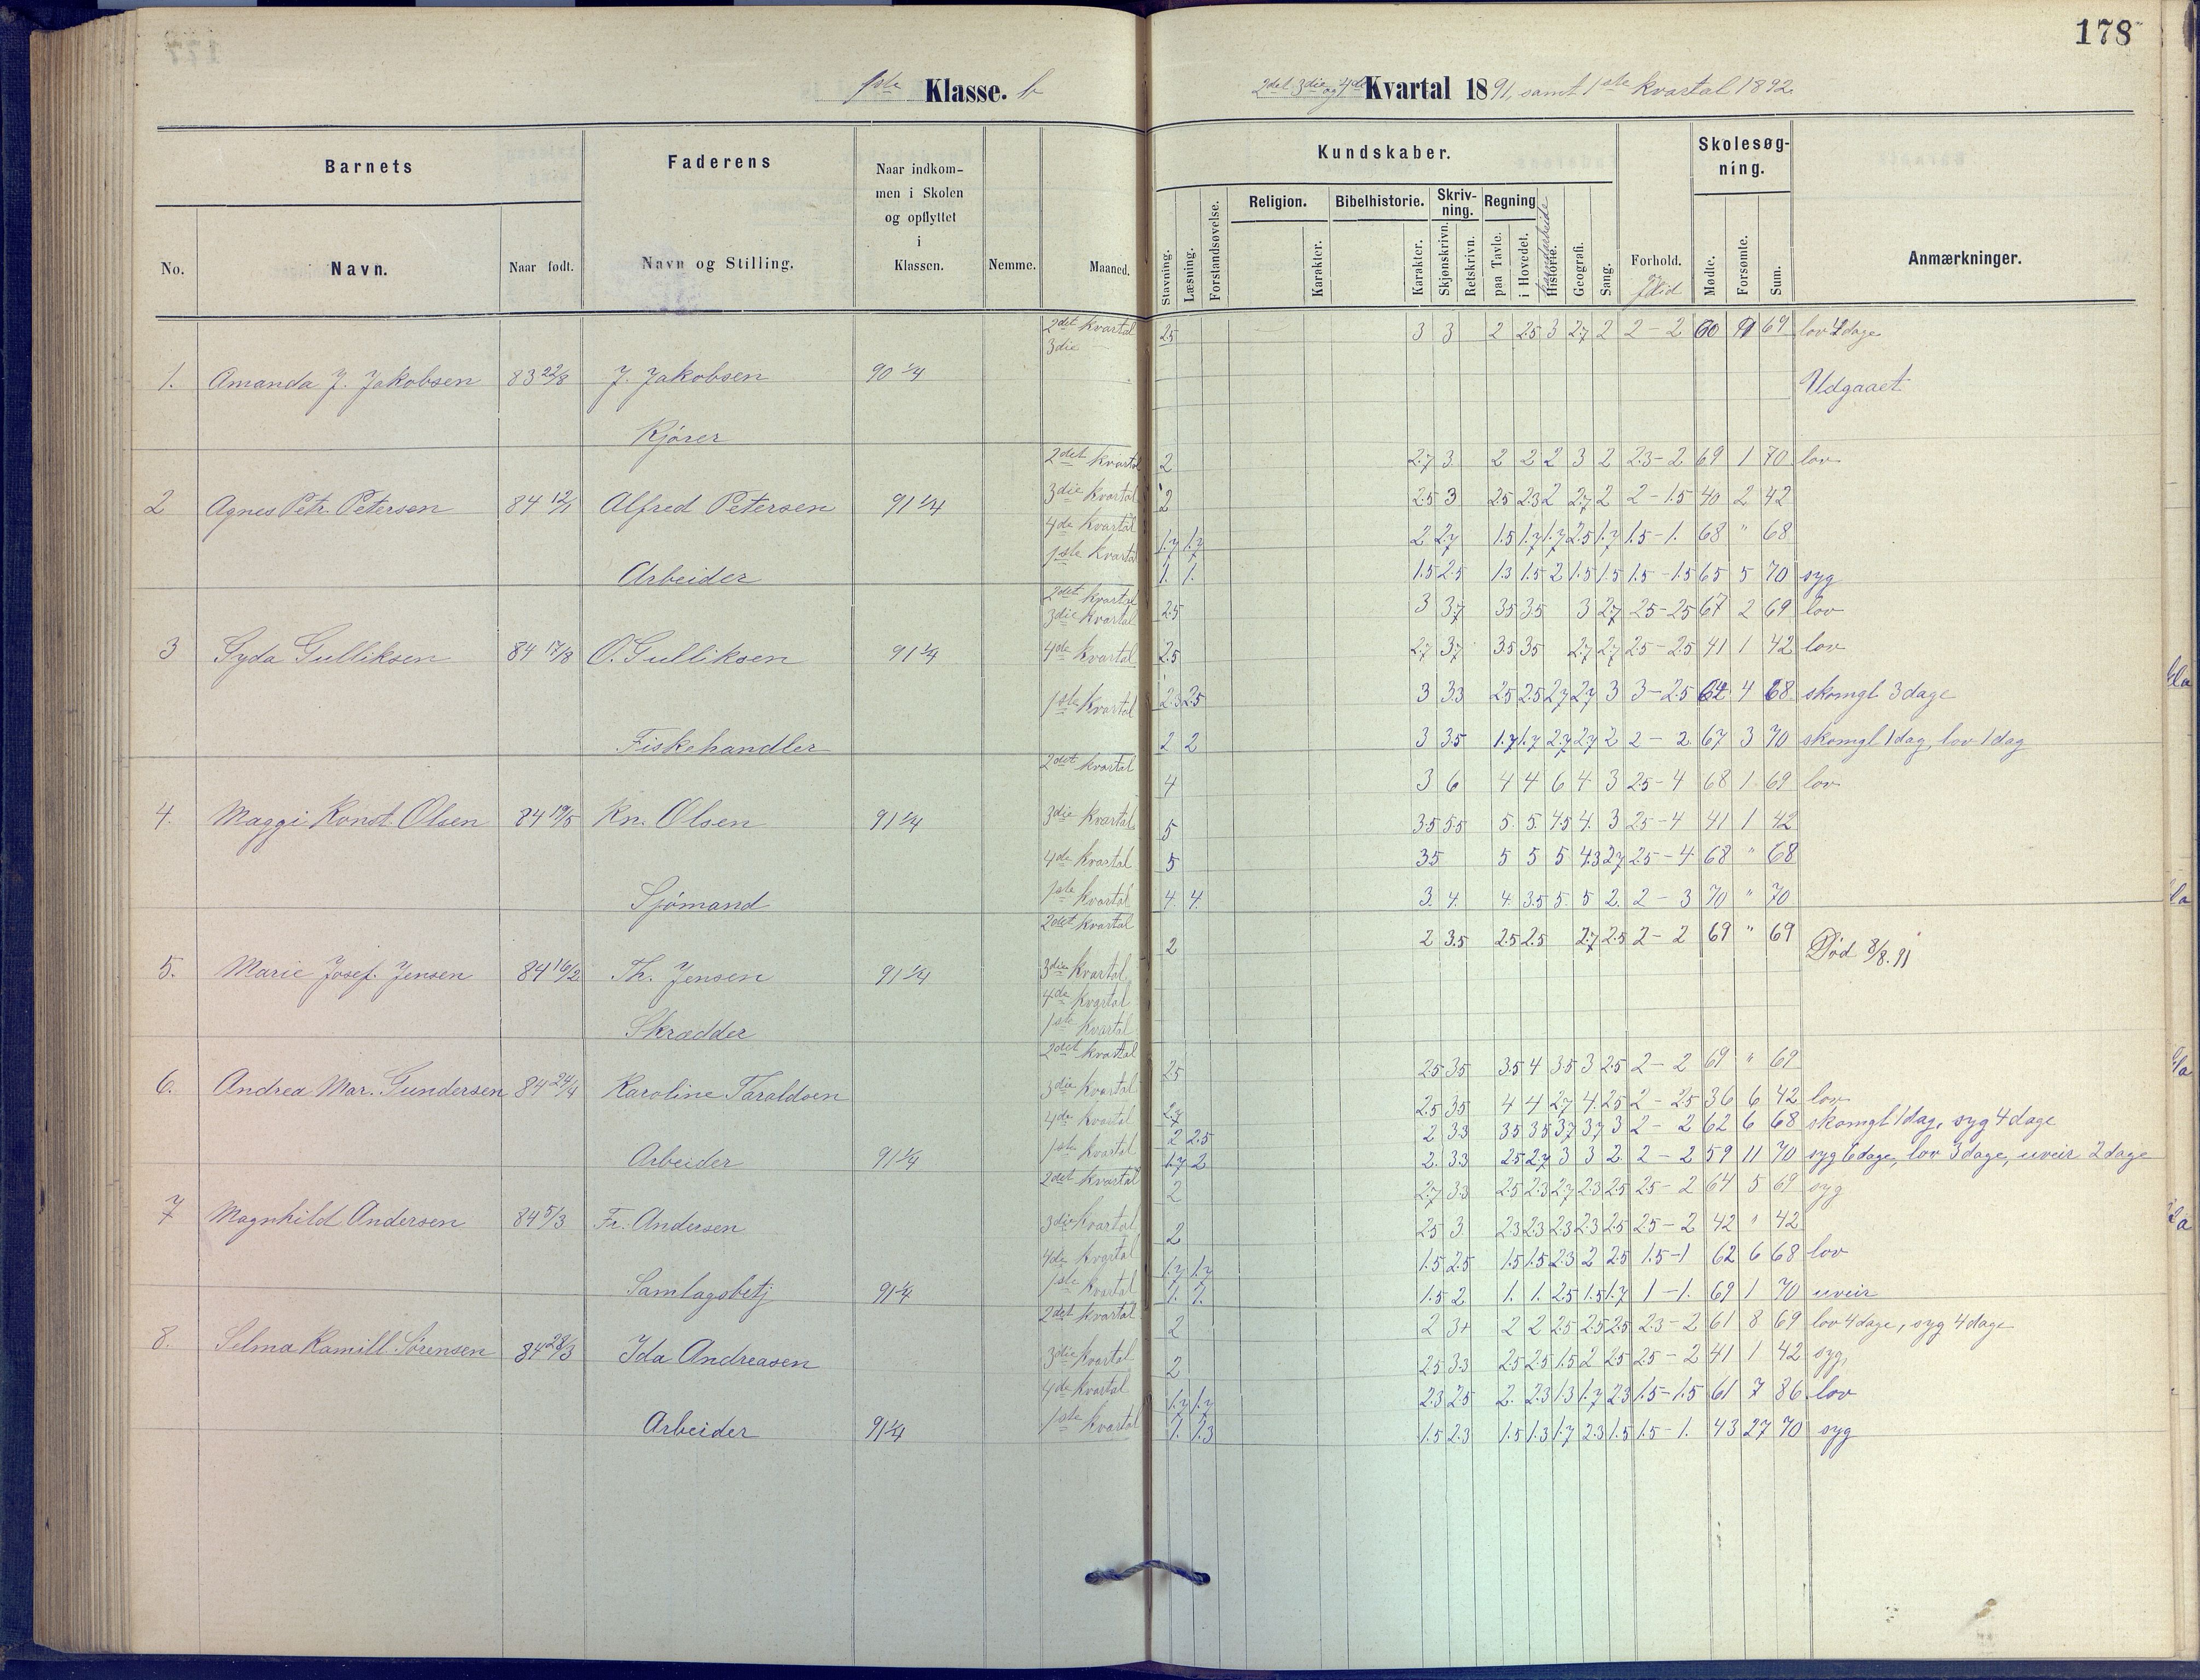 178
1ste Klasse. b
2det 3die og 4de Kvartal 1891, samt 1ste kvartal 1892.
Barnets Faderens Naar indkom-
men i Skolen
og opflyttet
i
Klassen. Nemme. Maaned.
No. Navn. Naar født. Navn og Stilling.
Kundskaber. Skolesøg-
ning.
Stavning. Læsning. Forstandsøvelse. Religion. Karakter. Bibelhistorie. Karakter. Skriv-
ning. Skjønskrivn. Retskrivn. Regning paa Tavle. i Hovedet. Haandarbeide Historie. Geografi. Sang. Forhold. Flid Mødte. Forsømte. Sum. Anmærkninger.
2det kvartal 2.5 3 3 2 2.5 3 2.7 2 2 - 2 60 9 69 lov 4 dage
3die
1. Amanda J. Jakobsen 83 22/8 J. Jakobsen 90 1/4 Udgaaet
Kjører
2det kvartal 2 2.7 3 2 2 2 3 2 2.3 - 2 69 1 70 lov
2 Agnes Petr. Petersen 84 12/1 Alfred Petersen 91 1/4 3die kvartal 2 2.5 3 2.5 2.3 2 2.7 2 2 - 1.5 40 2 42
4de kvartal 1.7 1.7 2 2.7 1.5 1.7 1.7 2.5 1.7 1.5 - 1. 68 " 68
Arbeider 1ste kvartal 1. 1. 1.5 2.5 1.3 1.5 2 1.5 1.5 1.5 - 1.5 65 5 70 syg
2det kvartal 2.5 3 3.7 3.5 3.5 3 2.7 2.5 - 2.5 67 2 69 lov
3die kvartal
3 Gyda Gulliksen 84 17/8 O. Gulliksen 91 1/4 4de kvartal 2.5 2.7 3.7 3.5 3.5 2.7 2.7 2.5 - 2.5 41 1 42 lov
1ste kvartal 2.3 2.5 3 3.3 2.5 2.5 2.7 2.7 3 3 - 2.5 64 4 68 skomgl. 3 dage
Fiskehandler 2 2 3 3.5 1.7 1.7 2.7 2.7 2 2 - 2 67 3 70 skomgl 1 dag, lov 1 dag
2det kvartal 4 3 6 4 4 6 4 3 2.5 - 4 68 1 69 lov
4. Maggi Konst. Olsen 84 19/5 Kn. Olsen 91 1/4 3die kvartal 5 3.5 5.5 5. 5. 4.5 4. 3 2.5 - 4 41 1 42
4de kvartal 5 3.5 5 5 5 4.3 2.7 2.5 - 4 68 " 68
Sjømand 1ste kvartal 4. 4. 3. 4. 4. 3.5 5. 5 2. 2 - 3 70 " 70
2det kvartal 2 2 3.5 2.5 2.5 2.7 2.5 2 - 2 69 " 69 Død 8/8. 91
5. Marie Josef. Jensen 84 16/2 Th. Jensen 91 1/4 3die kvartal
4de kvartal
Skrædder 1ste kvartal
2det kvartal 2.5 2.5 3.5 3.5 4 3.5 3 2.5 2 - 2 69 " 69
6. Andrea Mar. Gundersen 84 24/4 Karoline Taraldsen 3die kvartal 2.7 2.5 3.5 4 4 2.7 4. 2.5 2 - 2.5 36 6 42 lov
4de kvartal 2 2.5 2 3.3 3.5 3.5 3.7 3.7 3 2 - 2 62 6 68 skomgl 1 dag, syg 4 dage
Arbeider 91 1/4 1ste kvartal 1.7 2 2. 3.3 2.5 2.7 3 3 2. 2 - 2 59 11 70 syg 6 dage, lov 3 dage, uveir 2 dage
2det kvartal 2 2.7 3.3 2.5 2.3 2.7 2.3 2.5 2.5 - 2 64 5 69 syg
7 Magnhild Andersen 84 5/3 Fr. Andersen 3die kvartal 2 2.5 3 2.3 2.3 2.3 2.3 2.5 2.5 - 2 42 " 42
4de kvartal 1.7 1.7 1.5 2.5 1.5 1.5 2.3 2 2.5 1.5 - 1 62 6 68 lov
Samlagsbetj 91 1/4 1ste kvartal 1. 1. 1.5 2. 1. 1. 2.5 1.5 1.7 1 - 1. 69 1 70 uveir
2det kvartal 2 2 3+ 2 2 2.5 2.5 2.5 2.3 - 2 61 8 69 lov 4 dage, syg 4 dage
8. Selma Kamill. Sørensen 84 28/3 Ida Andreasen 3die kvartal 2 2.5 3.3 2.5 2.5 1.5 2 2.5 2.5 - 2 41 1 42 syg,
4de kvartal 1.7 1.7 2.3 2.5 2. 2.3 1.3 1.7 2.3 1.5 - 1.5 61 7 86 lov
Arbeider 91 1/4 1ste kvartal 1. 1.3 1.5 2.3 1.5 1.3 1.7 2.3 1.5 1.5 - 1. 43 27 70 syg